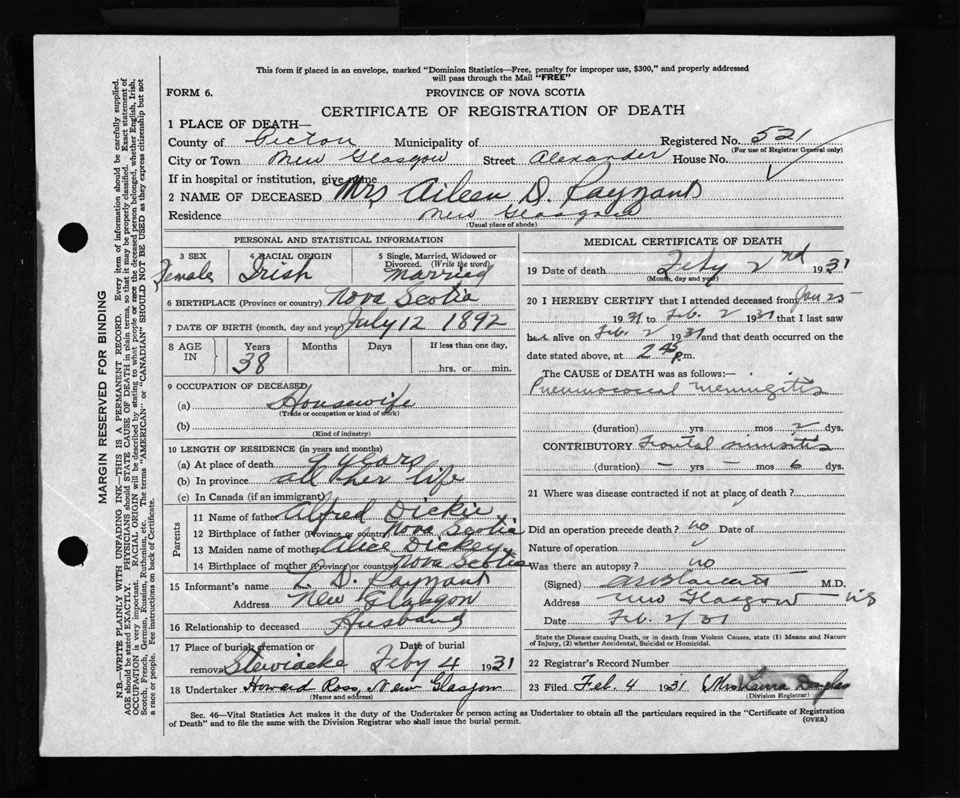 This form if placed in an envelope, marked "Dominion Statistics—Free, penalty for improper use, $300," and properly addressed
will pass through the Mail "FREE"
FORM 6.
PROVINCE OF NOVA SCOTIA
CERTIFICATE OF REGISTRATION OF DEATH
1 PLACE OF DEATH—
County of Pictou Municipality of Registered No. 521
(For use of Registrar General only)
City or Town New Glasgow Street Alexander House No.
If in hospital or institution, give name
2 NAME OF DECEASED Mrs Aileen D. Payzant
Residence New Glasgow
(Usual place of abode)
PERSONAL AND STATISTICAL INFORMATION
3 SEX Female
4 RACIAL ORIGIN Irish
5 Single, Married, Widowed or Divorced. (Write the word) Married
6 BIRTHPLACE (Province or country) Nova Scotia
7 DATE OF BIRTH (month, day and year) July 12 1892
8 AGE IN Years Months Days If less than one day,
38 hrs. or min.
9 OCCUPATION OF DECEASED
(a) Housewife
(Trade or occupation or kind of work)
(b)
(Kind of industry)
10 LENGTH OF RESIDENCE (in years and months)
(a) At place of death 9 years
(b) In province all her life
(c) In Canada (if an immigrant)
Parents
11 Name of father Alfred Dickie
12 Birthplace of father (Province or country) Nova Scotia
13 Maiden name of mother Alice Dickey
14 Birthplace of mother (Province or country) Nova Scotia
15 Informant's name D. Payzant
Address New Glasgow
16 Relationship to deceased Husband
17 Place of burial, cremation or removal Stewiacke
Date of burial Feby 4 1931
18 Undertaker Howard Ross, New Glasgow
(Name and address)
MEDICAL CERTIFICATE OF DEATH
19 Date of death Feby 2nd 1931
(Month, day and year)
20 I HEREBY CERTIFY that I attended deceased from Jan 25
1931 to Feb. 2 1931 that I last saw
her alive on Feb. 2 1931 and that death occurred on the
date stated above, at 2 45 p.m.
The CAUSE of DEATH was as follows:—
Pneumococcal meningitis
(duration) yrs mos 2 dys.
CONTRIBUTORY Frontal sinusitis
(duration) — yrs — mos 6 dys.
21 Where was disease contracted if not at place of death?
Did an operation precede death? no Date of
Nature of operation
Was there an autopsy? no
(Signed) M.D.
Address New Glasgow NS
Date Feb. 2/31
State the Disease causing Death, or in death from Violent Causes, state (1) Means and Nature
of Injury, (2) whether Accidental, Suicidal or Homicidal.
22 Registrar's Record Number
23 Filed Feb. 4 1931 Mrs Douglas
(Division Registrar)
Sec. 46—Vital Statistics Act makes it the duty of the Undertaker or person acting as Undertaker to obtain all the particulars required in the "Certificate of Registration
of Death" and to file the same with the Division Registrar who shall issue the burial permit.
(OVER)
MARGIN RESERVED FOR BINDING
N.B.—WRITE PLAINLY WITH UNFADING INK—THIS IS A PERMANENT RECORD. Every item of information should be carefully supplied.
AGE should be stated EXACTLY. PHYSICIANS should STATE CAUSE OF DEATH in plain terms, so that it may be properly classified. Exact statement of
OCCUPATION is very important. RACIAL ORIGIN will be described by stating to what people or race the deceased person belonged, whether English, Irish,
Scotch, French, German, Russian, Ruthenian, etc. The terms "AMERICAN" or "CANADIAN" SHOULD NOT BE USED as they express citizenship but not
a race or people. See instructions on back of Certificate.